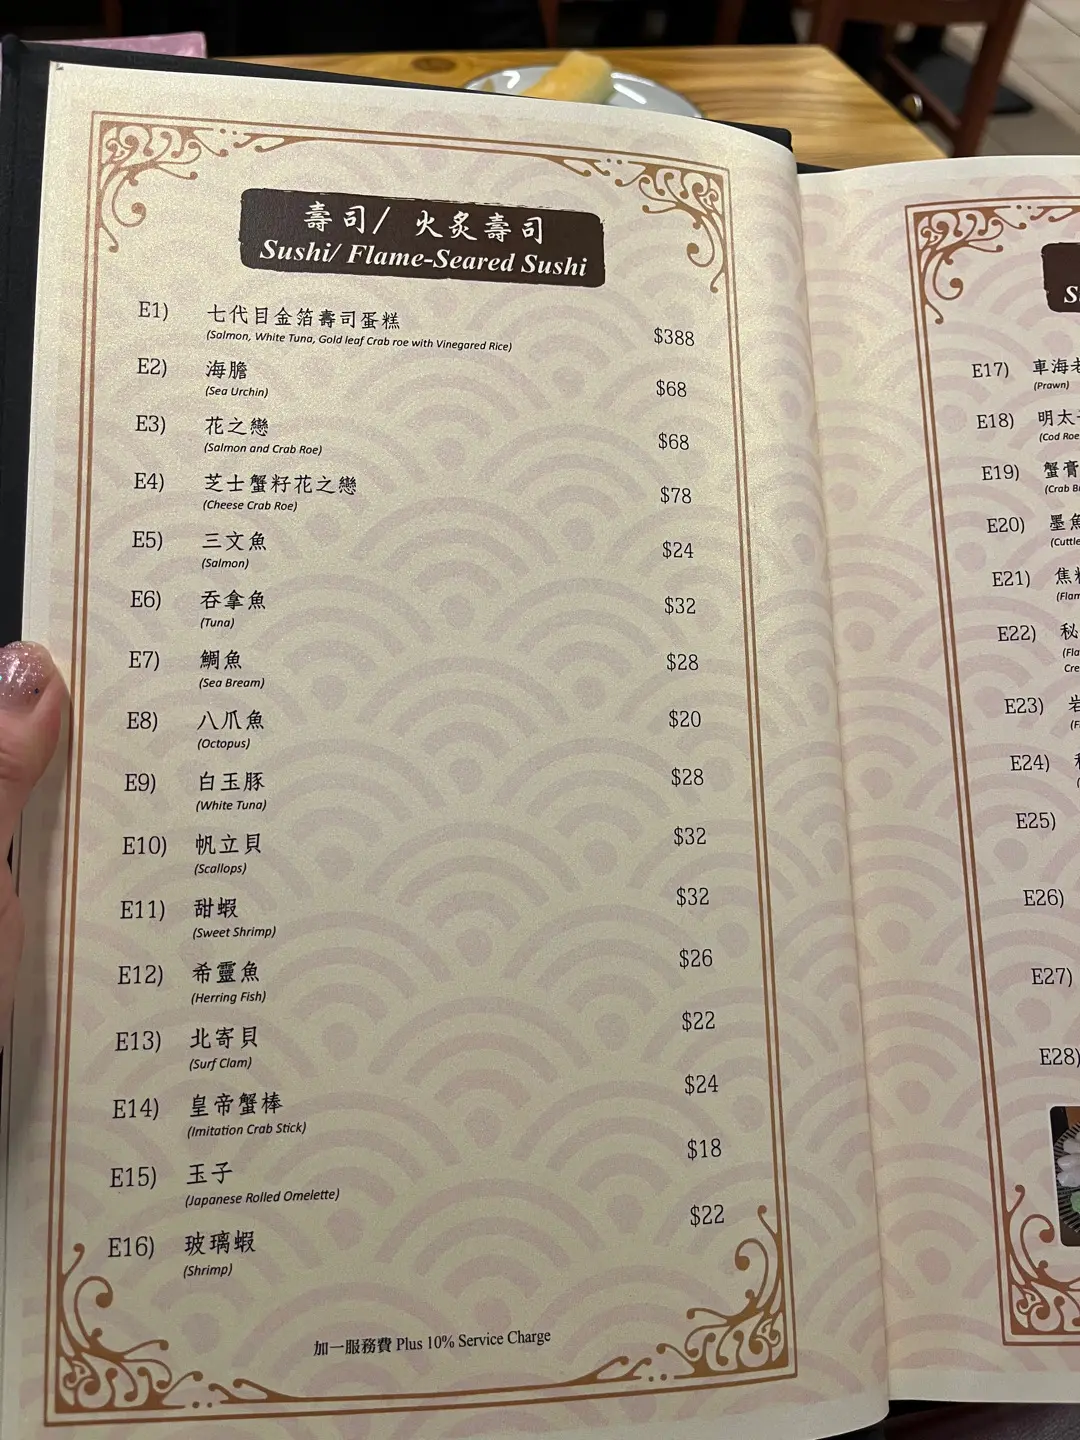 壽司/ 火炙壽司
Sushi/ Flame-Seared Sushi
E1) 七代目金箔壽司蛋糕 $388
(Salmon, White Tuna, Gold leaf Crab roe with Vinegared Rice)
E2) 海膽 $68
(Sea Urchin)
E3) 花之戀 $68
(Salmon and Crab Roe)
E4) 芝士蟹籽花之戀 $78
(Cheese Crab Roe)
E5) 三文魚 $24
(Salmon)
E6) 吞拿魚 $32
(Tuna)
E7) 鯛魚 $28
(Sea Bream)
E8) 八爪魚 $20
(Octopus)
E9) 白玉豚 $28
(White Tuna)
E10) 帆立貝 $32
(Scallops)
E11) 甜蝦 $32
(Sweet Shrimp)
E12) 希靈魚 $26
(Herring Fish)
E13) 北寄貝 $22
(Surf Clam)
E14) 皇帝蟹棒 $24
(Imitation Crab Stick)
E15) 玉子 $18
(Japanese Rolled Omelette)
E16) 玻璃蝦 $22
(Shrimp)
加一服務費 Plus 10% Service Charge
S
E17) 車海老
(Prawn)
E18) 明太
(Cod Roe
E19) 蟹膏
(Crab
E20) 墨魚
E21) 焦
E22) 秘
E23)
E24)
E25)
E26)
E27)
E28)